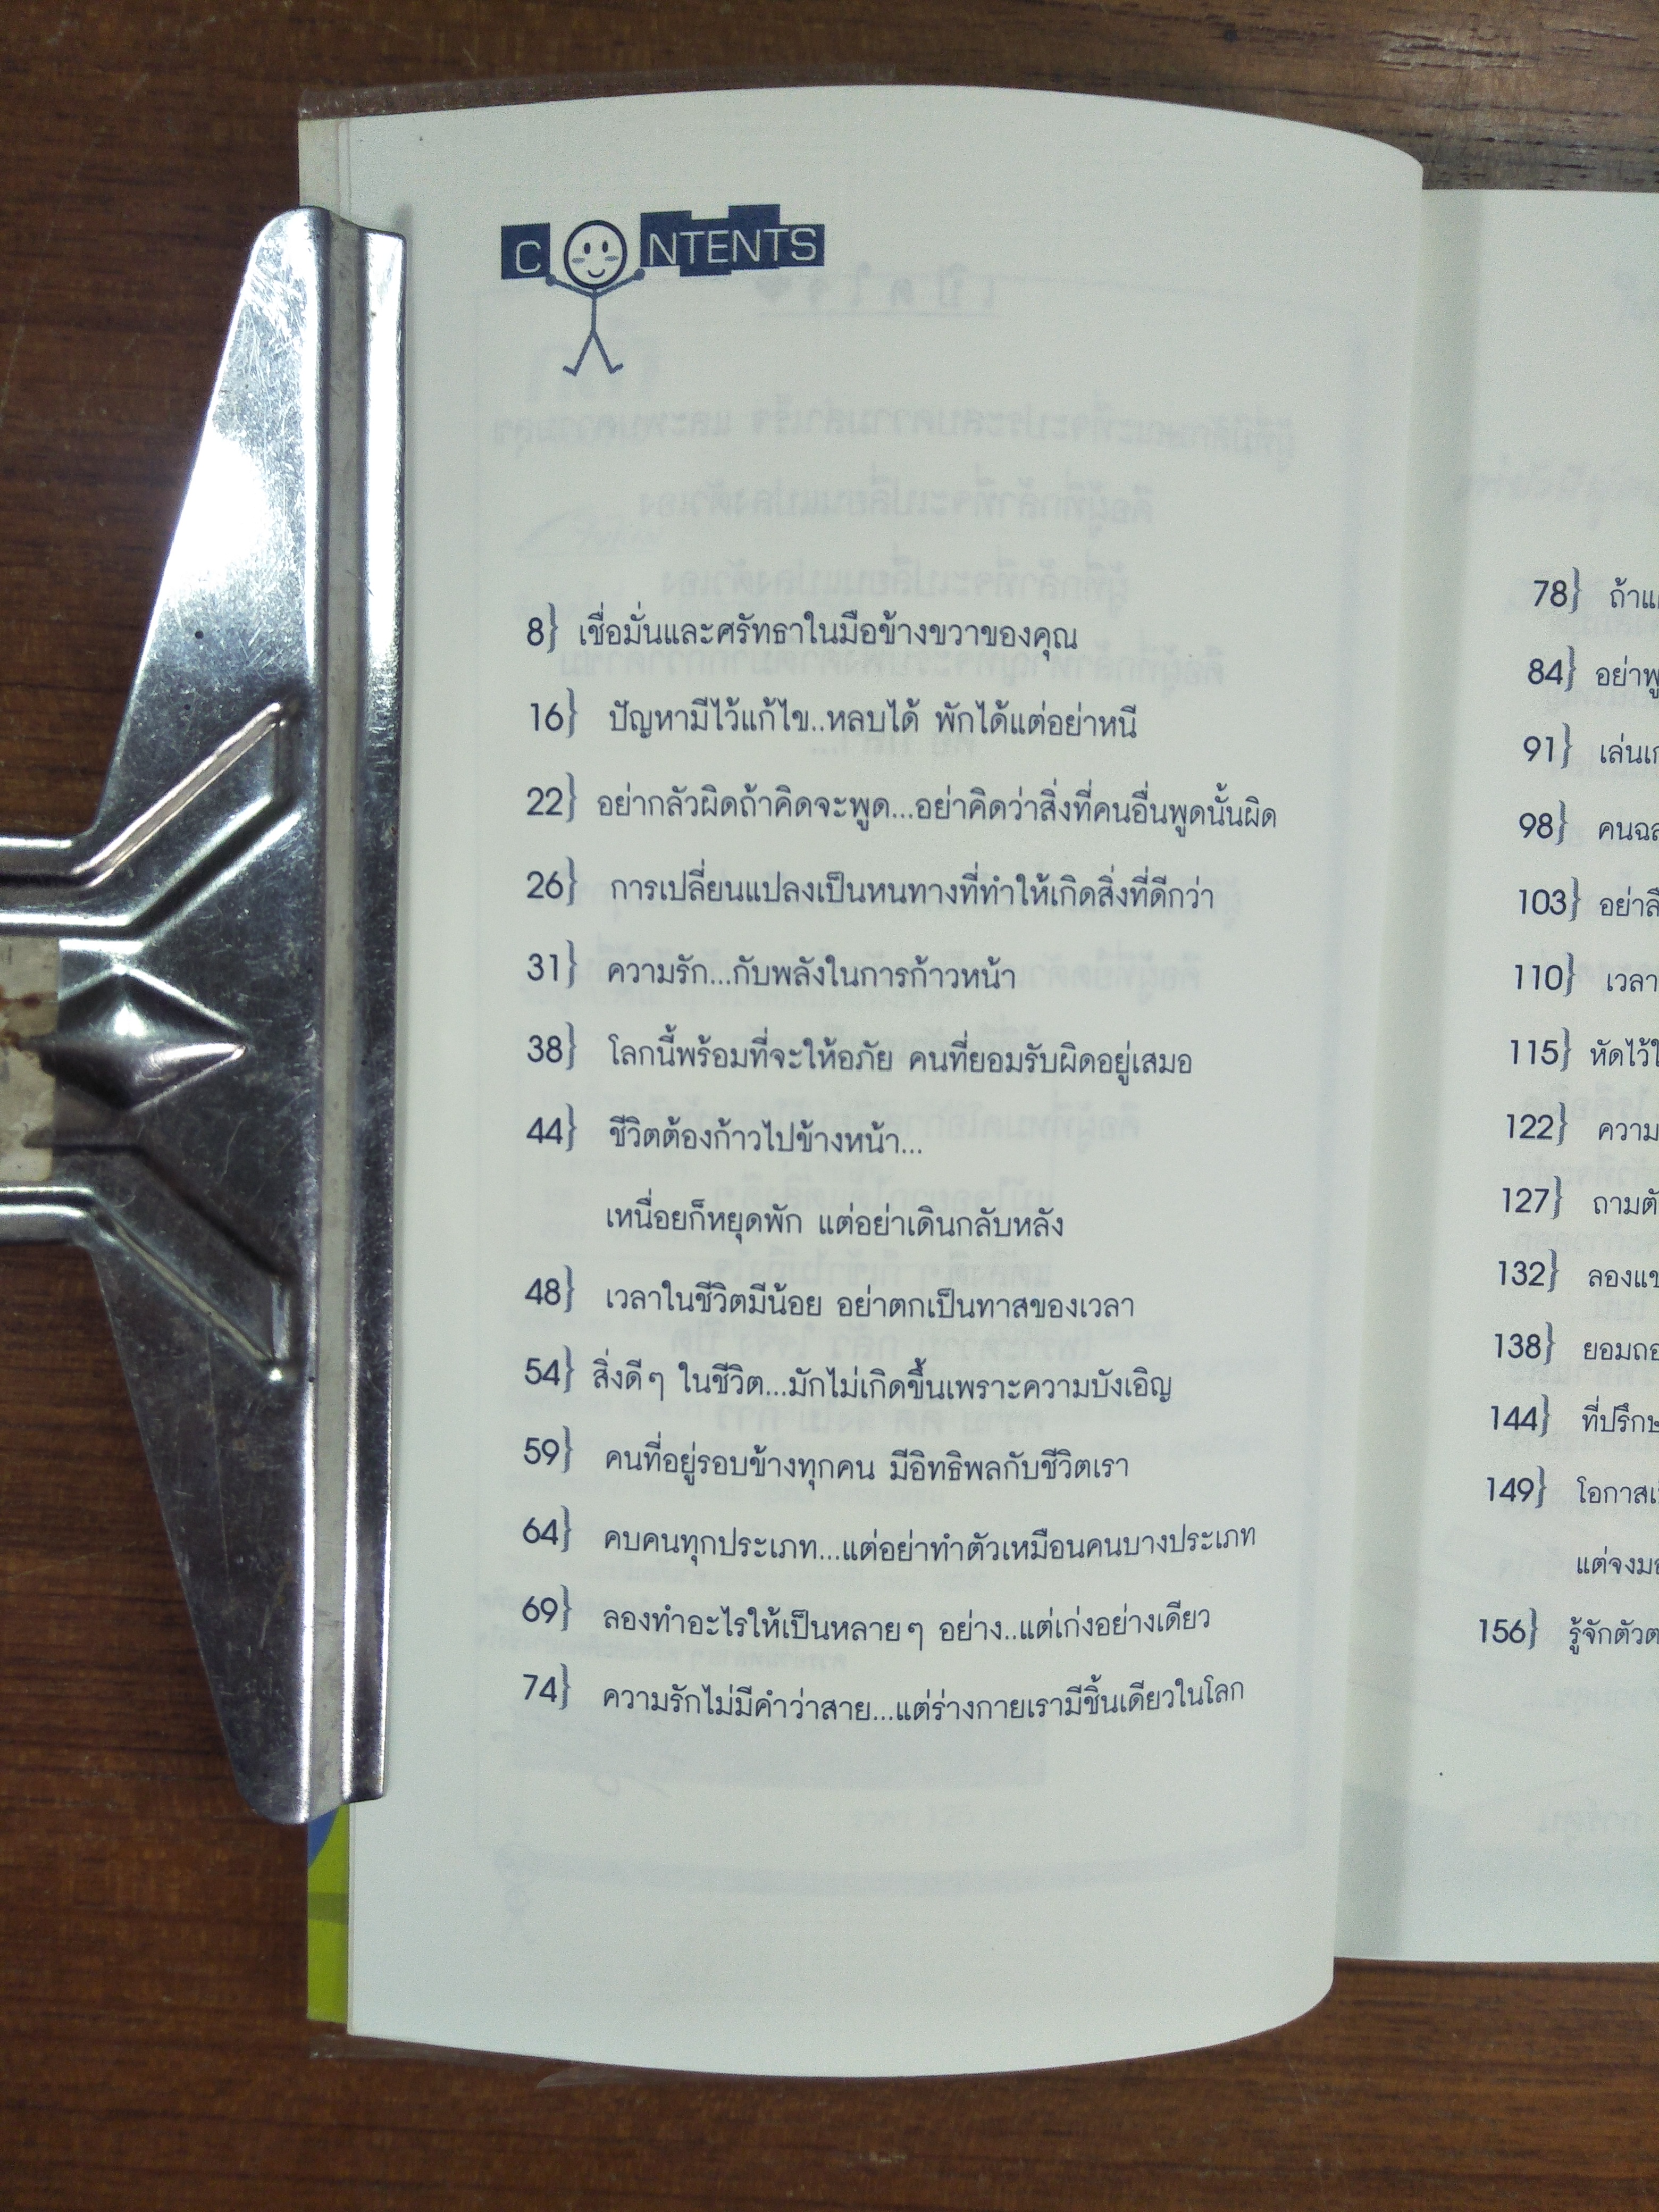 CONTENTS
8} เชื่อมั่นและศรัทธาในมือข้างขวาของคุณ
16} ปัญหามีไว้แก้ไข..หลบได้ พักได้แต่อย่าหนี
22} อย่ากลัวผิดถ้าคิดจะพูด...อย่าคิดว่าสิ่งที่คนอื่นพูดนั้นผิด
26} การเปลี่ยนแปลงเป็นหนทางที่ทำให้เกิดสิ่งที่ดีกว่า
31} ความรัก...กับพลังในการก้าวหน้า
38} โลกนี้พร้อมที่จะให้อภัย คนที่ยอมรับผิดอยู่เสมอ
44} ชีวิตต้องก้าวไปข้างหน้า...
เหนื่อยก็หยุดพัก แต่อย่าเดินกลับหลัง
48} เวลาในชีวิตมีน้อย อย่าตกเป็นทาสของเวลา
54} สิ่งดีๆ ในชีวิต...มักไม่เกิดขึ้นเพราะความบังเอิญ
59} คนที่อยู่รอบข้างทุกคน มีอิทธิพลกับชีวิตเรา
64} คบคนทุกประเภท...แต่อย่าทำตัวเหมือนคนบางประเภท
69} ลองทำอะไรให้เป็นหลายๆ อย่าง..แต่เก่งอย่างเดียว
74} ความรักไม่มีคำว่าสาย...แต่ร่างกายเรามีชิ้นเดียวในโลก
78} ถ้า
84} อย่า
91} เล่น
98} คน
103} อย่า
110} เวลา
115} หัดไว้
122} ความ
127} ถาม
132} ลอง
138} ยอม
144} ที่
149} โอกาส
แต่จง
156} รู้จักตัว